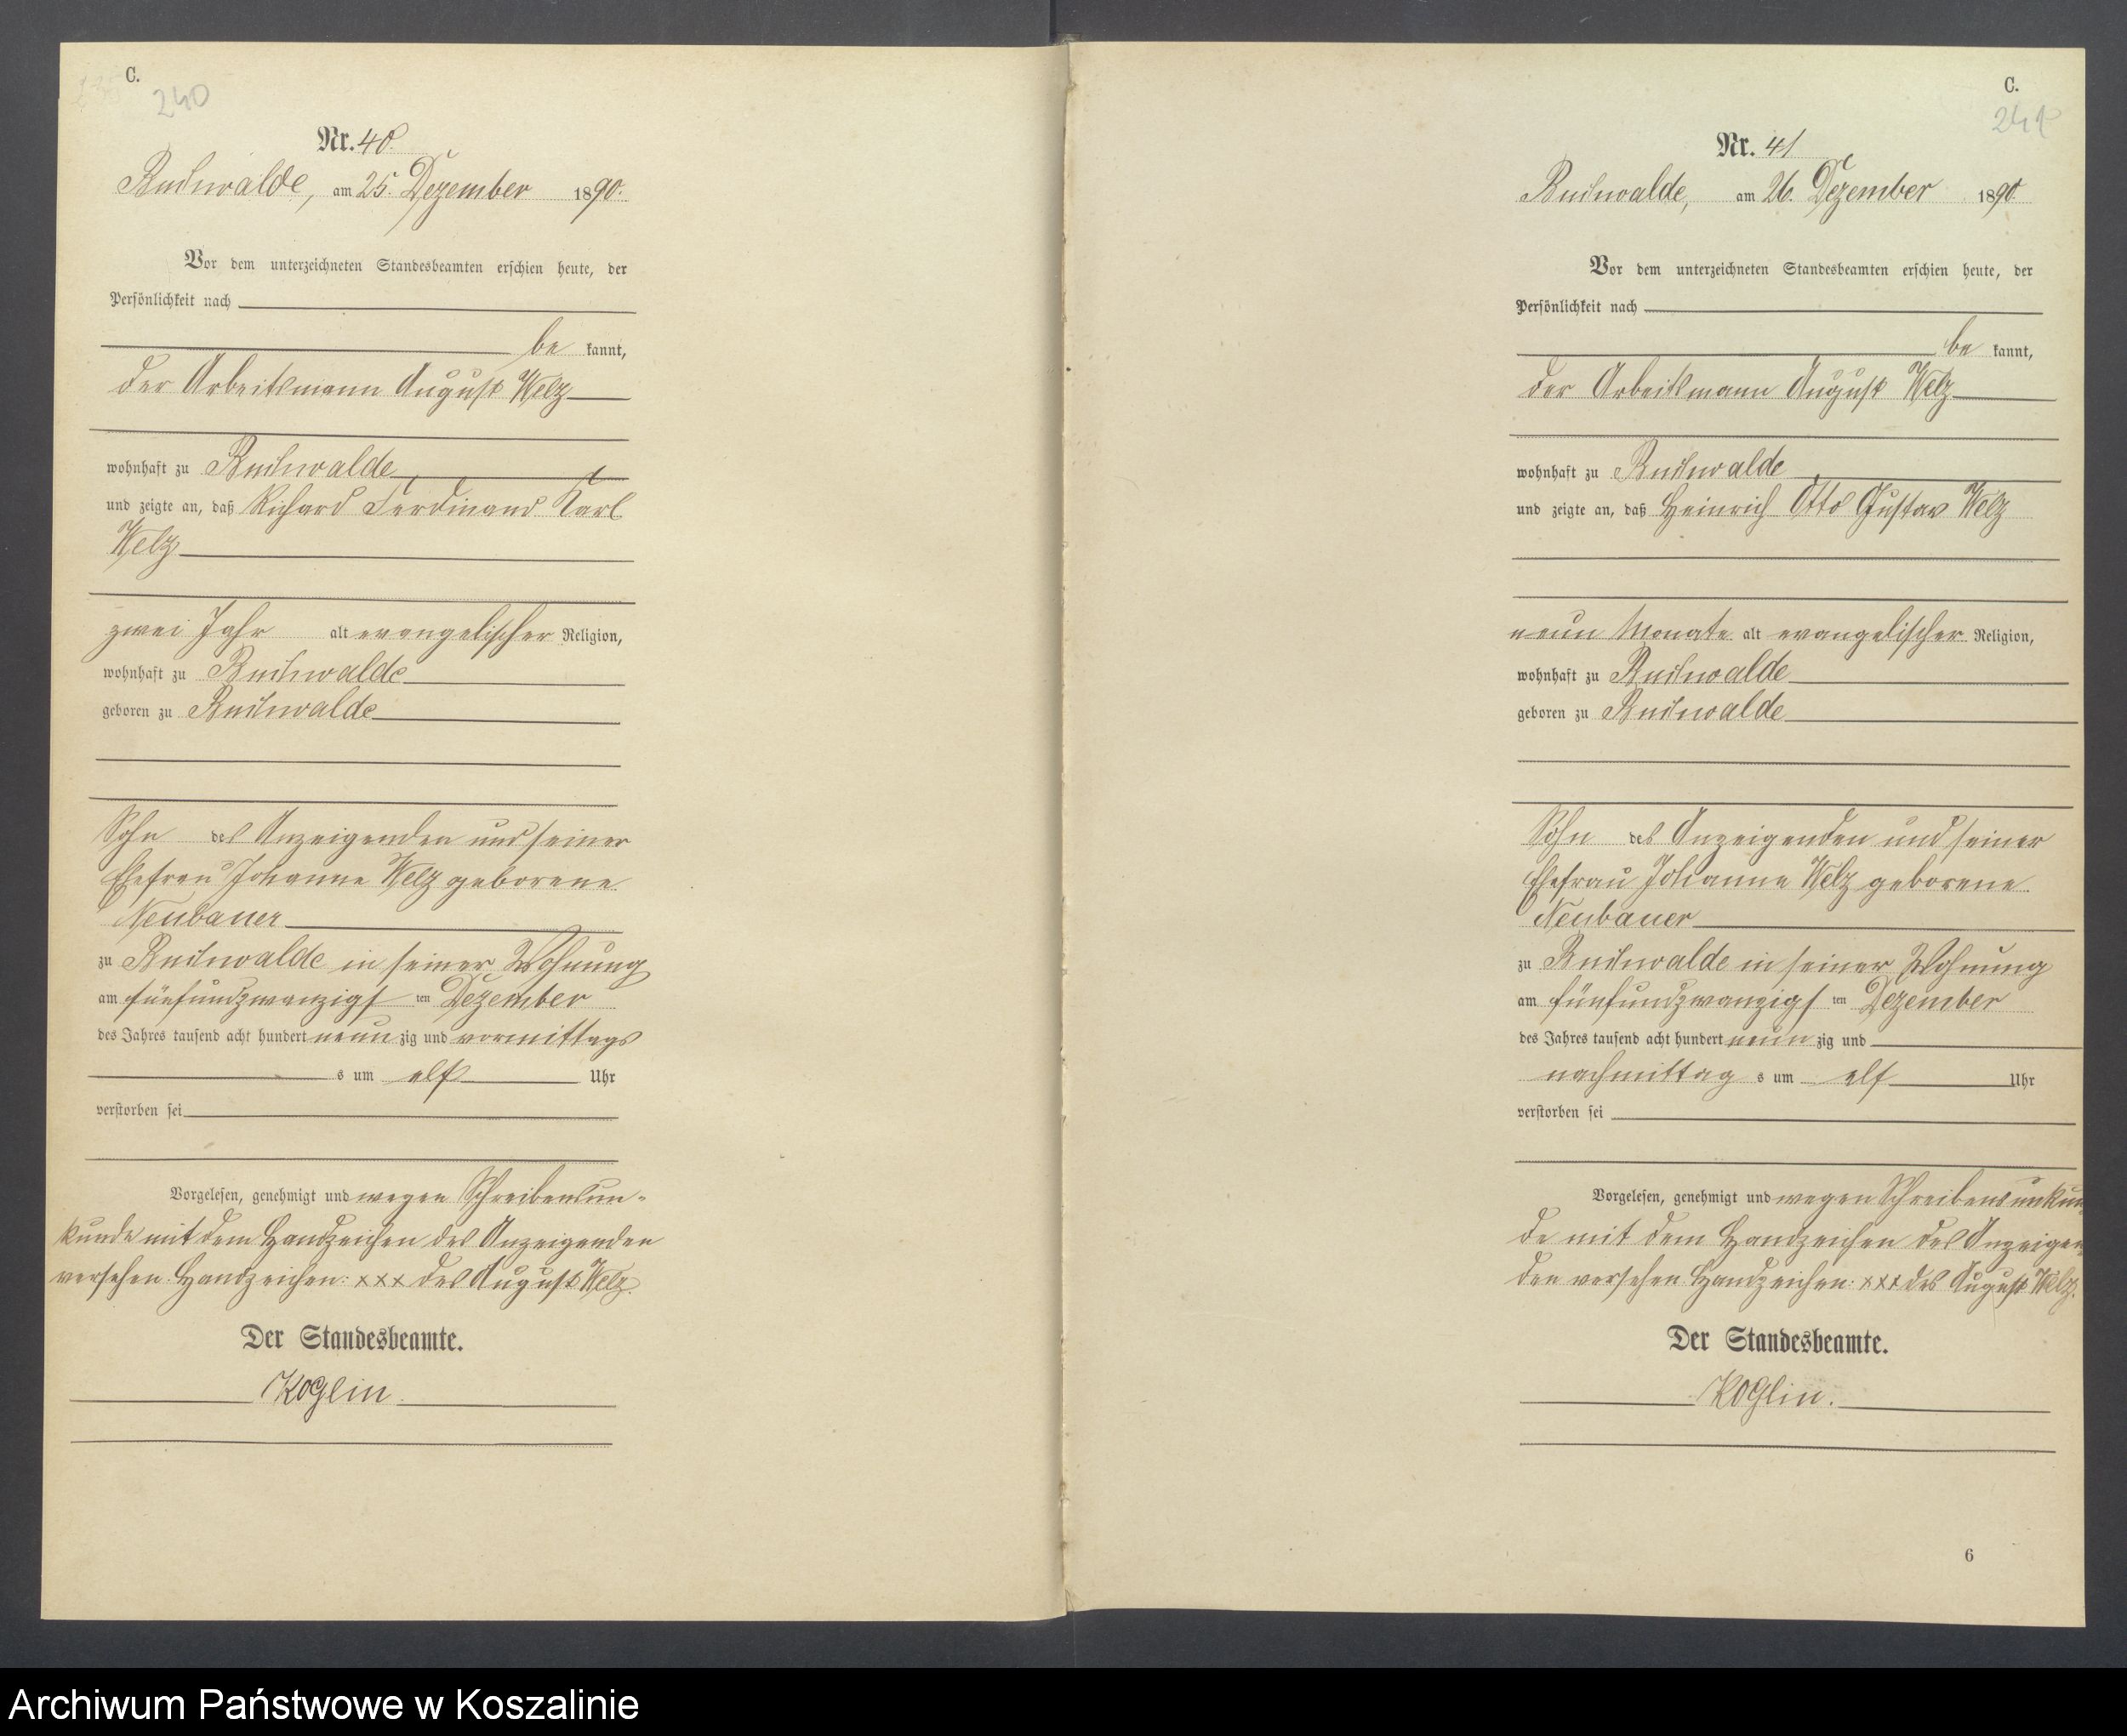 C.
240
Nr. 40.
am 25. Dezember 1890.
Vor dem unterzeichneten Standesbeamten erschien heute, der
Persönlichkeit nach
be kannt,
der Arbeitsmann August Welz
wohnhaft zu
und zeigte an, daß Richard Ferdinand Karl
Welz
zwei Jahr alt evangelischer Religion,
wohnhaft zu
geboren zu
Sohn des Anzeigenden und seiner
Ehefrau Johanne Welz geborene
Neubauer
zu in seiner Wohnung
am fünfundzwanzigs ten Dezember
des Jahres tausend acht hundert neun zig und vormittags
s um elf Uhr
verstorben sei
Vorgelesen, genehmigt und wegen Schreibensun-
kunde mit dem Handzeichen des Anzeigenden
versehen. Handzeichen: xxx des August Welz.
Der Standesbeamte.
Koglin.
C.
241
Nr. 41
am 26. Dezember 1890.
Vor dem unterzeichneten Standesbeamten erschien heute, der
Persönlichkeit nach
be kannt,
der Arbeitsmann August Welz
wohnhaft zu
und zeigte an, daß Heinrich Otto Gustav Welz
neun Monate alt evangelischer Religion,
wohnhaft zu
geboren zu
Sohn des Anzeigenden und seiner
Ehefrau Johanne Welz geborene
Neubauer
zu in seiner Wohnung
am fünfundzwanzigs ten Dezember
des Jahres tausend acht hundert neun zig und
nachmittag s um elf Uhr
verstorben sei
Vorgelesen, genehmigt und wegen Schreibensunkun-
de mit dem Handzeichen des Anzeigen-
den versehen. Handzeichen: xxx des August Welz.
Der Standesbeamte.
Koglin.
6
Archiwum Państwowe w Koszalinie